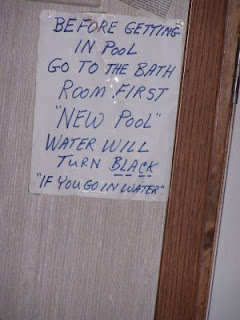 BEFORE GETTING
IN POOL
GO TO THE BATH
ROOM FIRST
"NEW POOL"
WATER WILL
TURN BLACK
"IF YOU GO IN WATER"